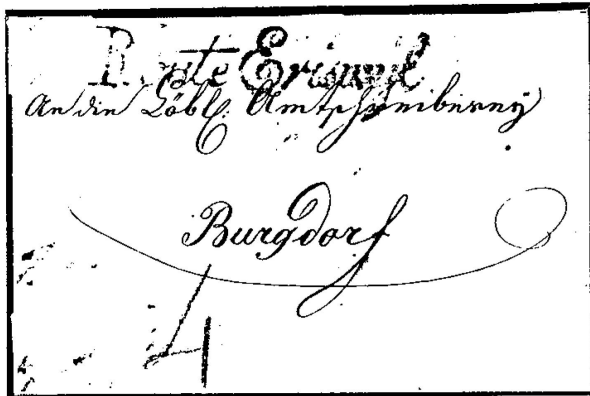 Route Eriswyl
An die Löbl. Amtschreiberey
Burgdorf
4